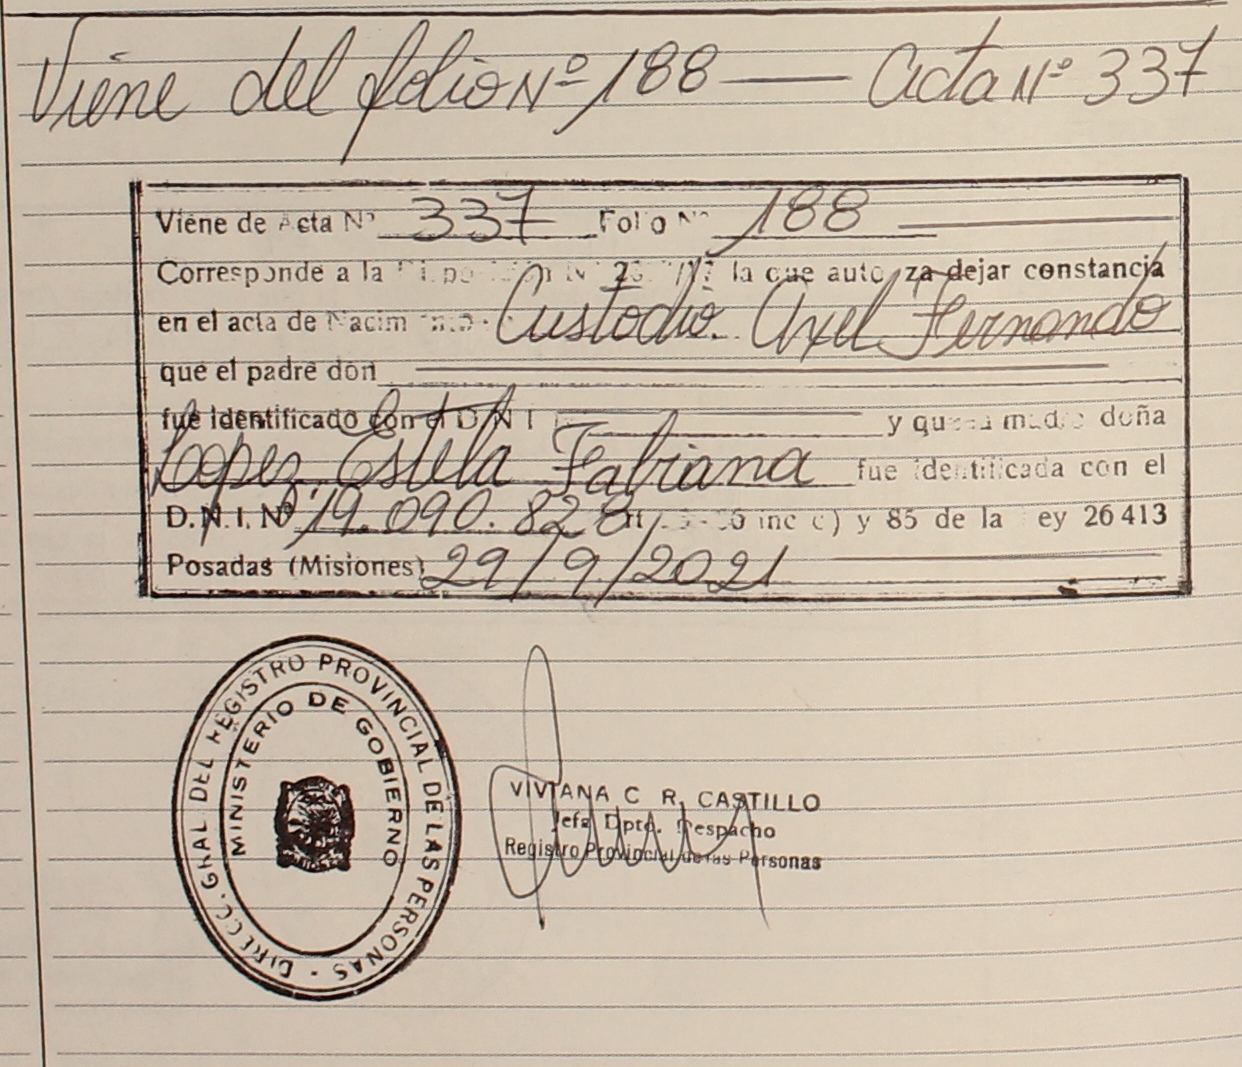 Viene del folio Nº 188 — Acta Nº 337
Viene de Acta Nº 337 Folio Nº 188
Corresponde a la la que autoriza dejar constancia
en el acta de Nacimiento Custodio. Axel Fernando
que el padre don
fue identificado con el D N I y que la madre doña
Lopez Estela Fabiana fue identificada con el
D.N.I. Nº 19.090.828 inc c) y 85 de la Ley 26 413
Posadas (Misiones) 29/9/2021
DIRECC. GRAL DEL REGISTRO PROVINCIAL DE LAS PERSONAS
MINISTERIO DE GOBIERNO
VIVIANA C R. CASTILLO
Jefa Dpto. Despacho
Registro Provincial de las Personas